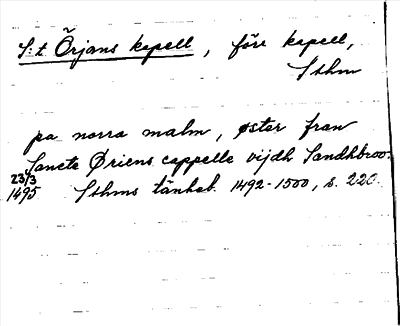 S:t Örjans kapell, före kapell,
Sthm
pa norra malm, øster fran
Sancte Øriens cappelle vijdh Sandhbroo.
23/3
1495 Sthms tänkeb. 1492-1500, s. 220.